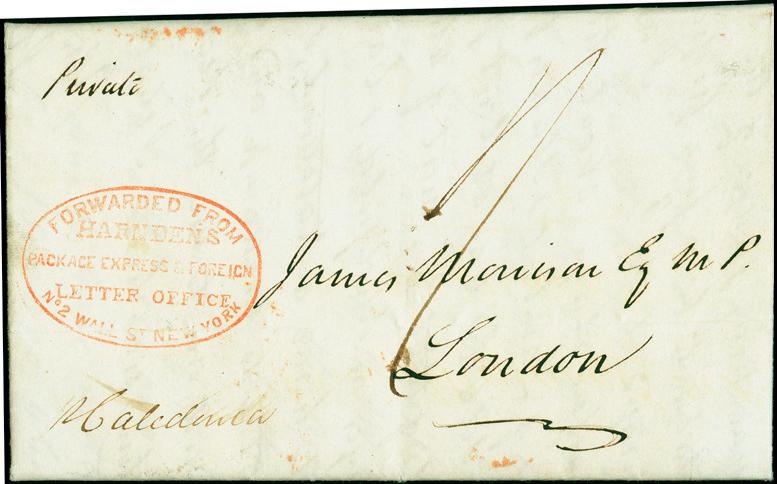 Private
FORWARDED FROM
HARNDEN'S
PACKAGE EXPRESS & FOREIGN
LETTER OFFICE
No 2 WALL ST NEW YORK
James Morrison Esq M.P.
London
Caledonia